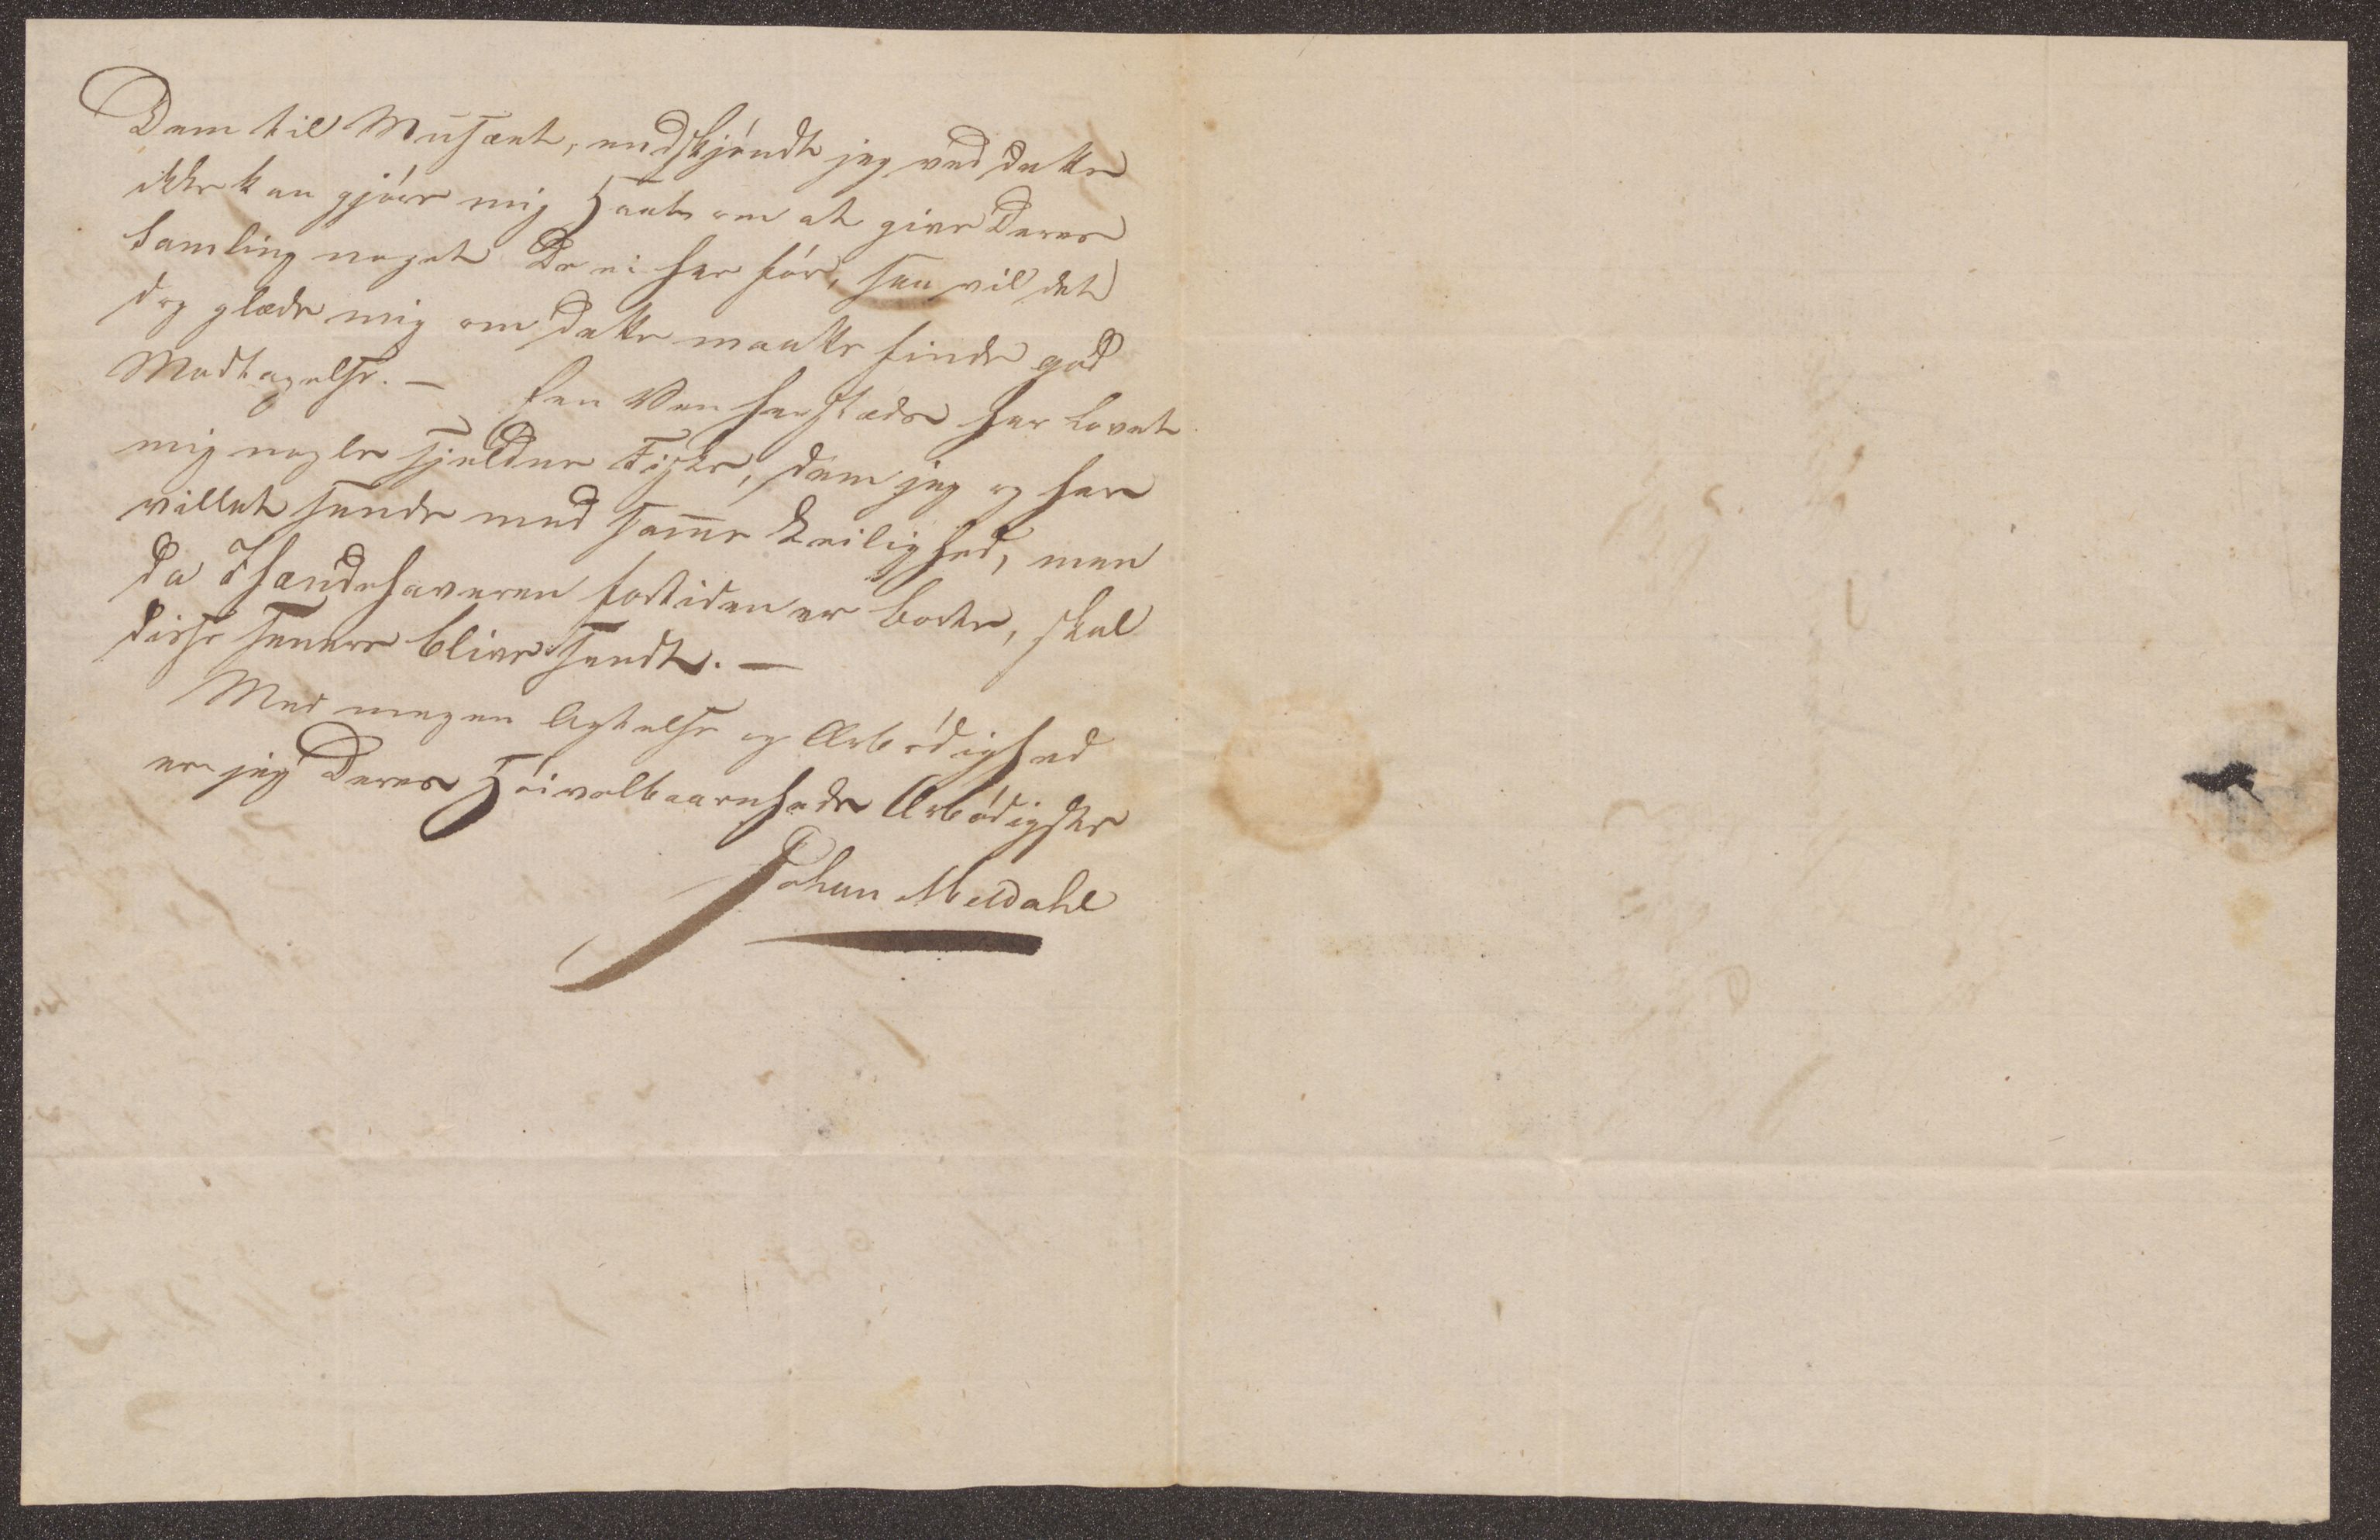 Dem til Musæet, endskjöndt jeg ved dette
ikke kan gjöre mig Haab om at give Deres
Samling noget De ei har för, saa vil det
dog glæde mig om dette maatte finde god
Modtagelse. — Een Ven herstæds har lovet
mig nogle sjeldne Fiske, dem jeg og har
villet sende med samme Leilighed, men
da Ihændehaveren fortiden er borte, skal
disse senere blive sendt. —
Med megen Agtelse og Ærbödighed
er jeg Deres Höivelbaarenheds Ærbödigste
Johan Meldahl